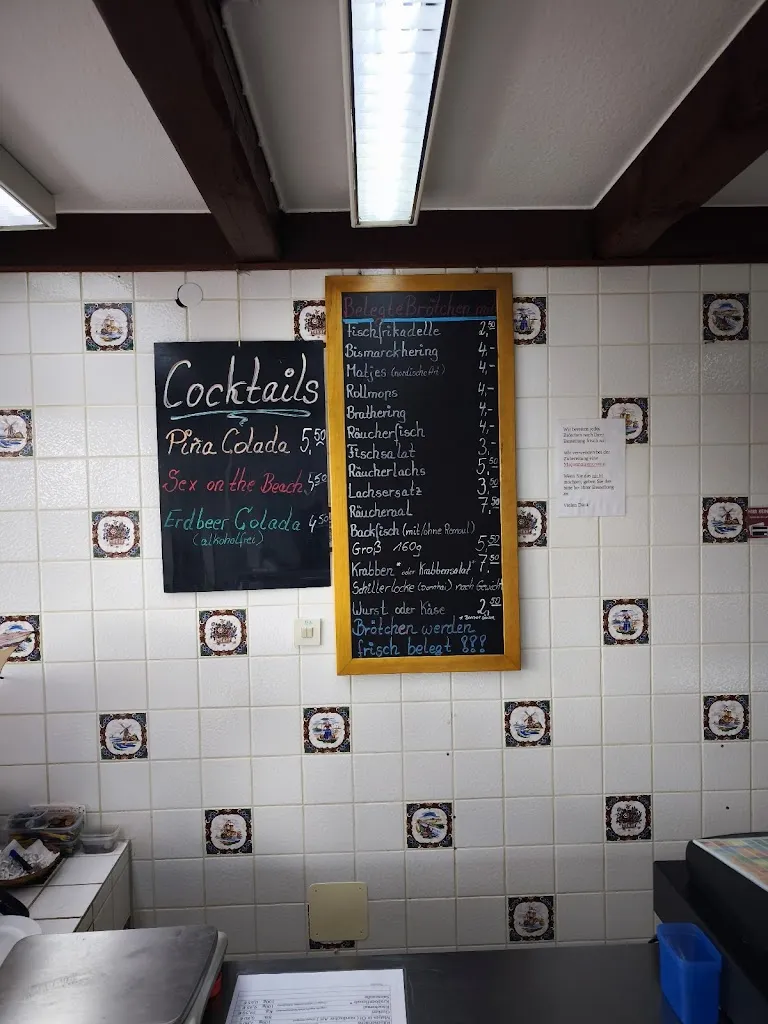 Cocktails
Piña Colada 5,50
Sex on the Beach 4,50
Erdbeer Colada 4,50
(alkoholfrei)
Belegte Brötchen
Fischfrikadelle 2,50
Bismarckhering 4,-
Matjes (nordische Art) 4,-
Rollmops 4,-
Brathering 4,-
Räucherfisch 4,-
Fischsalat 3,-
Räucherlachs 5,50
Lachsersatz 3,50
Räucheraal 7,50
Backfisch (mit/ohne Remoul)
Groß 160g 5,50
Krabben* oder Krabbensalat* 7,50
Schillerlocke (Dornhai) nach Gewicht
Wurst oder Käse 2,50
Brötchen werden
frisch belegt !!!
Wir
Vielen Dank